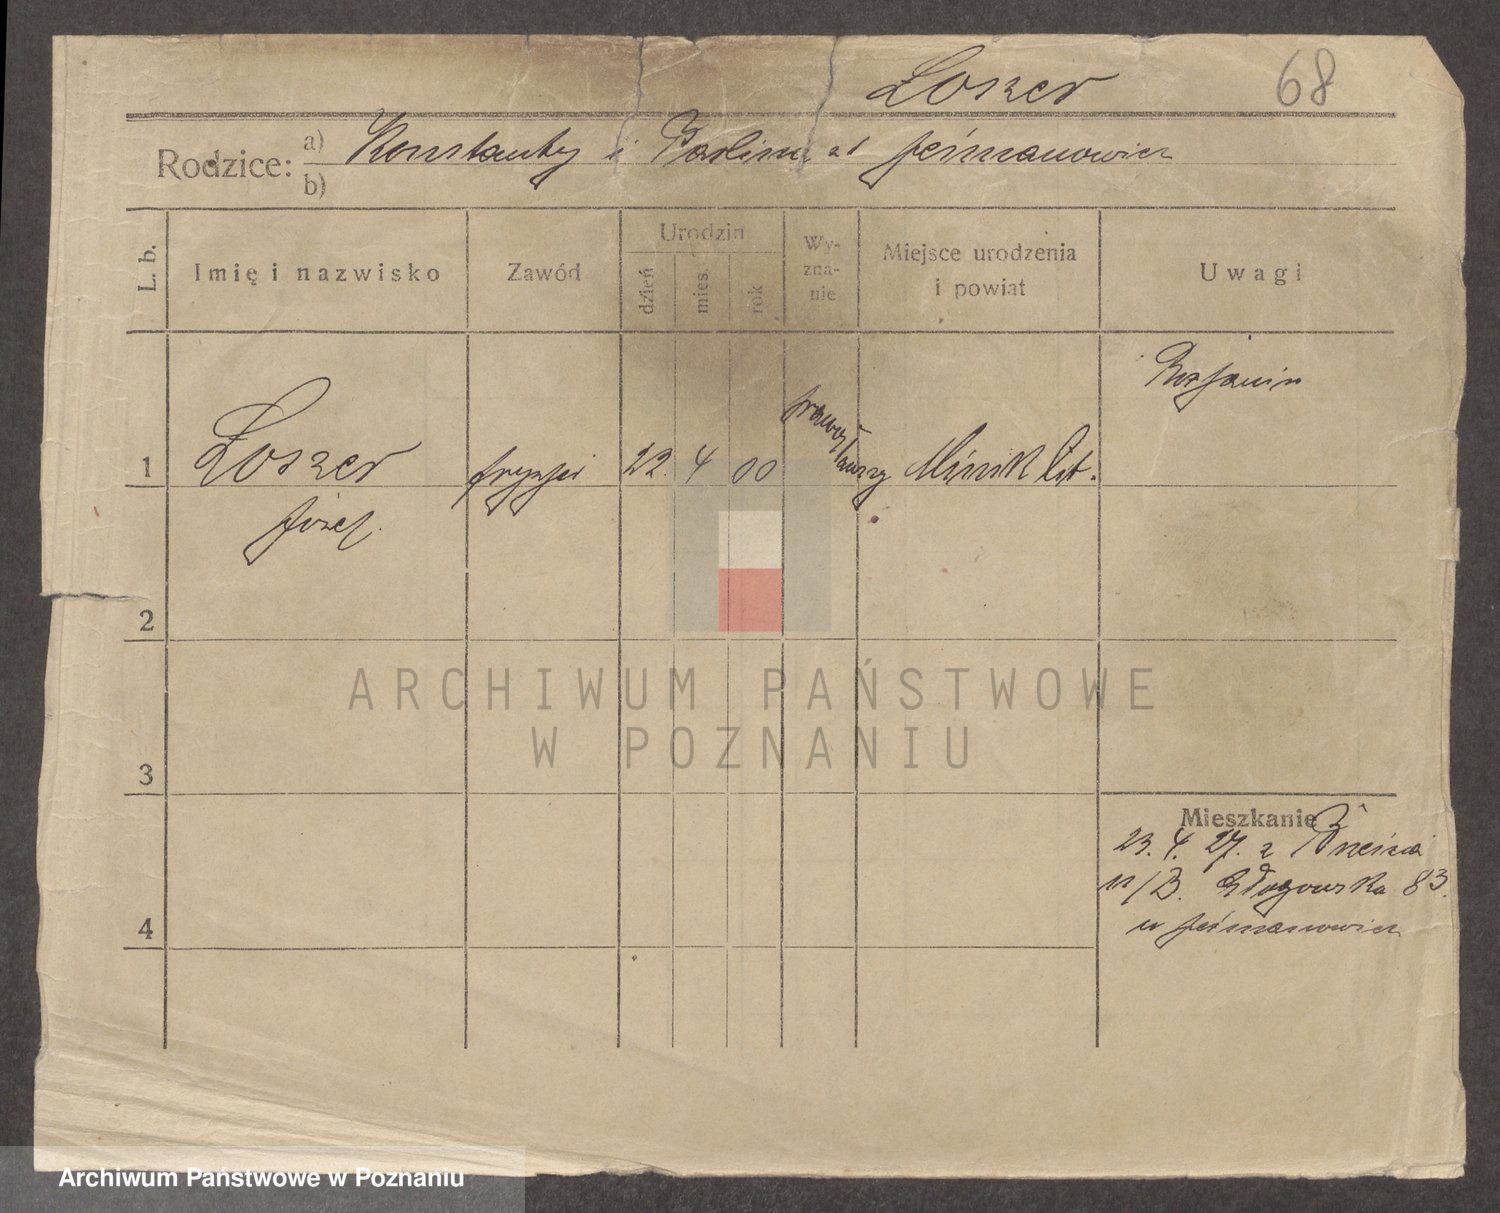 Łoszer 68
Rodzice: a) Konstanty i Paulina zd Jeśmanowicz
b)
L. b. Imię i nazwisko Zawód Urodzin dzień mies. rok Wy-zna-nie Miejsce urodzenia i powiat Uwagi
Rosjanin
1 Łoszer fryzjer 22. 4 00 prawosławny Mińsk Lit.
Józef.
2
3
Mieszkanie
23. 4. 27. z Brześcia
n/B. Głogowska 83.
4 u Jeśmanowicz
ARCHIWUM PAŃSTWOWE
W POZNANIU
Archiwum Państwowe w Poznaniu